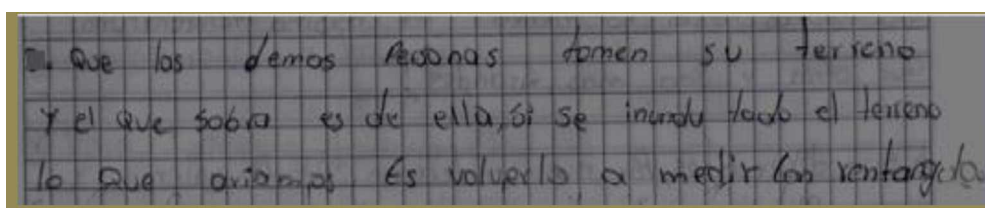 Que los demas Pesonas tomen su terreno
Y el que sobra es de ella, si se inundu todo el terreno
lo que ariamos Es volverlo a medir con rentangulo